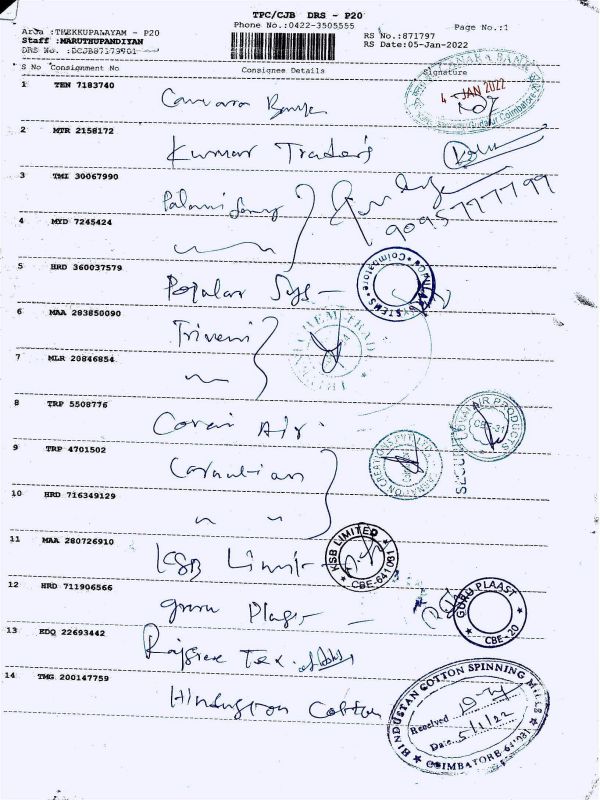 TPC/CJB DRS - P20
Phone No.:0422-3505555
Page No.:1
Area :THEKKUPALAYAM - P20
Staff :MARUTHUPANDIYAN
DRS No. :DCJB87179901
RS No.:871797
RS Date:05-Jan-2022
S No Consignment No Consignee Details Signature
1 TEN 7183740 Canara Bank
4 JAN 2022
2 MTR 2158172 Kumar Traders
3 TMI 30067990
9095777799
4 MYD 7245424
5 HRD 360037579 Popular Sys
POPULAR SYSTEMS * Coimbatore *
6 MAA 283850090 Triveni
7 MLR 20846854
8 TRP 5508776 Air
AIR PRODUCTS
CBE-31
SECURITY
9 TRP 4701502
CREATIONS PVT LTD
10 HRD 716349129 " "
11 MAA 280726910 KSB Limit
KSB LIMITED * CBE-641031 *
12 HRD 711906566 guru Plast
GURU PLAAST * CBE-20 *
13 EDQ 22693442 Rajshree Tex
14 TMG 200147759 Hindustan Cotton
HINDUSTAN COTTON SPINNING MILLS
Received
Date 5/1/22
* COIMBATORE 641031 *